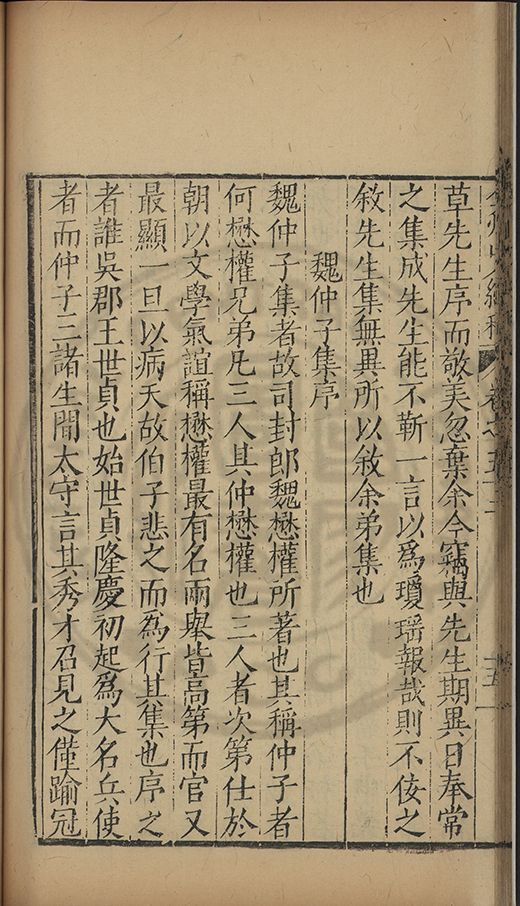 草先生序而敬美忽棄余今竊與先生期異日奉常
之集成先生能不靳一言以爲瓊瑶報哉則不佞之
敘先生集無異所以敘余弟集也
魏仲子集序
魏仲子集者故司封郎魏懋權所著也其稱仲子者
何懋權兄弟凡三人其仲懋權也三人者次第仕於
朝以文學氣誼稱懋權最有名兩舉皆高第而官又
最顯一旦以病夭故伯子悲之而為行其集也序之
者誰吳郡王世貞也始世貞隆慶初起爲大名兵使
者而仲子三諸生間太守言其秀才召見之僅踰冠